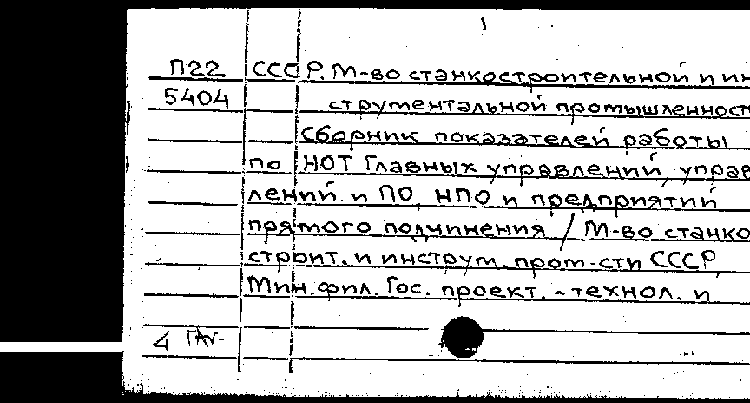 П22 СССР. М-во станкостроительной и ин
5404 струментальной промышленност
Сборник показателей работы
по НОТ Главных управлений, управ
лений и ПО, НПО и предприятий
прямого подчинения / М-во станко
строит. и инструм. пром-сти СССР,
Мин. фил. Гос. проект.-технол. и
4